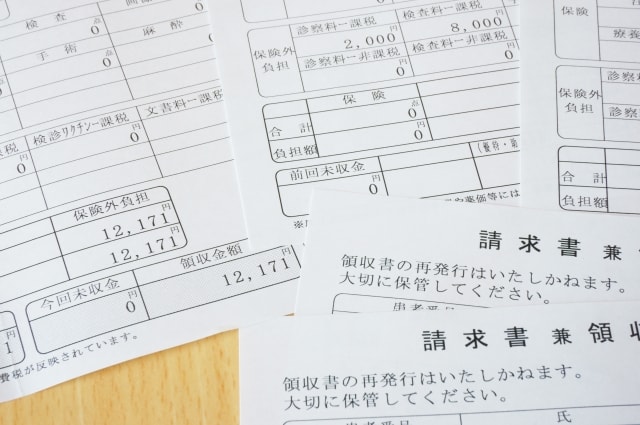 検査
0点
手術
0点
麻酔
0点
検診ワクチン-課税
文書料-課税
0円
0円
保険外負担
12,171円
12,171円
領収金額
12,171円
今回未収金
0円
費税が反映されています。
保険外
負担
診察料-課税
検査料-課税
2,000円
8,000円
診察料-非課税
検査料-非課税
0円
0円
保険
合計
0点
負担額
0円
前回未収金
0円
保険
療養
保険外
負担
診察
診察
合計
負担額
請求書 兼
領収書の再発行はいたしかねます。
大切に保管してください。
患者番号
請求書 兼 領収
領収書の再発行はいたしかねます。
大切に保管してください。
患者番号
氏